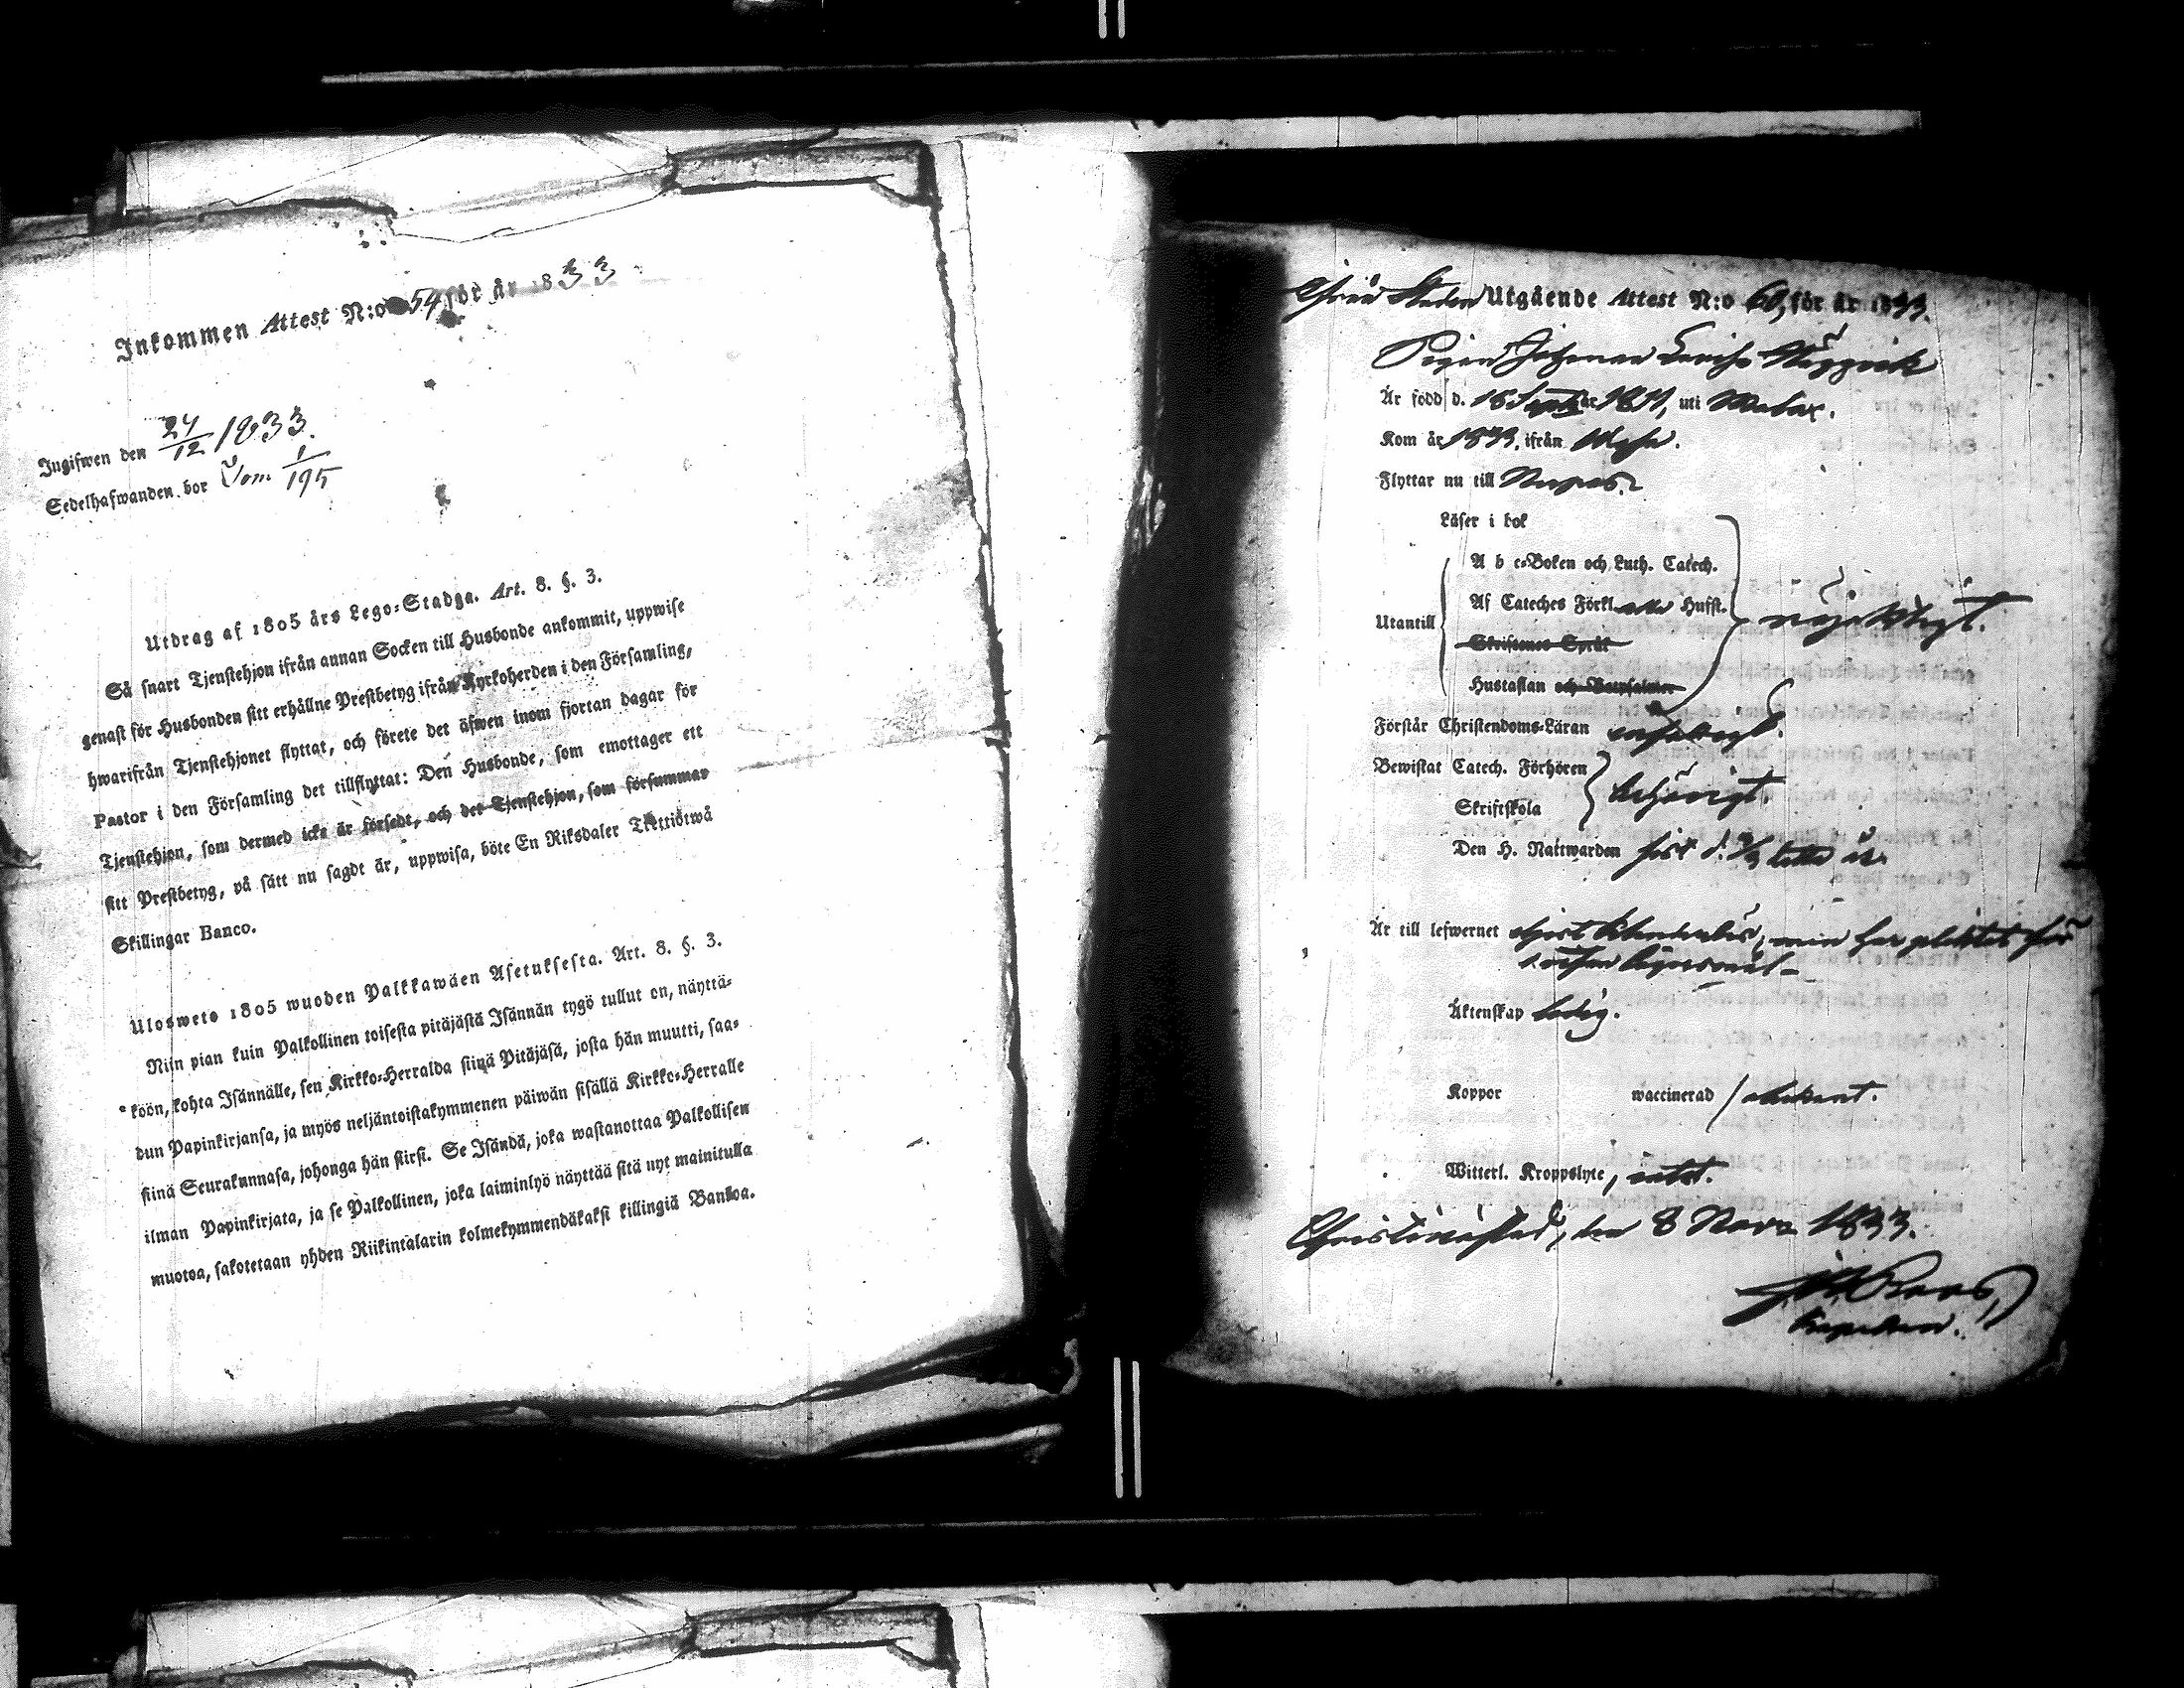 Inkommen Attest N:o 54 för år 1833
Ingifwen den 24/12 1833.
Sedelhafwanden bor Tom. 1/195
Utdrag af 1805 års Lego-Stadga. Art. 8. §. 3.
Så snart Tjenstehjon ifrån annan Socken till Husbonde ankommit, uppwise
genast för Husbonden sitt erhållne Prestbetyg ifrån Kyrkoherden i den Församling,
hwarifrån Tjenstehjonet flyttat, och förete det äfwen inom fjortan dagar för
Pastor i den Församling det tillflyttat: Den Husbonde, som emottager ett
Tjenstehjon, som dermed icke är försedt, och det Tjenstehjon, som försummar
sitt Prestbetyg, på sätt nu sagdt är, uppwisa, böte En Riksdaler Trettiotwå
Skillingar Banco.
Ulosweto 1805 wuoden Palkkawäen Asetuksesta. Art. 8. §. 3.
Niin pian kuin Palkollinen toisesta pitäjästä Isännän tygö tullut on, näyttä-
köön, kohta Isännälle, sen Kirkko-Herralda siinä Pitäjäsä, josta hän muutti, saa-
dun Papinkirjansa, ja myös neljäntoistakymmenen päiwän sisällä Kirkko-Herralle
siinä Seurakunnasa, johonga hän siirsi. Se Isändä, joka wastanottaa Palkollisen
ilman Papinkirjata, ja se Palkollinen, joka laiminlyö näyttää sitä nyt mainitulla
muotoa, sakotetaan yhden Riikintalarin kolmekymmendäkaksi killingiä Bankoa.
Ifrån Staden Utgående Attest N:o 60, för år 1833.
Pigan Johanna
Är född d. 16 Sept. år 1811, uti Malax.
Kom år 1833. ifrån Wasa.
Flyttar nu till
Läser i bok
Utantill
A b c-Boken och Luth. Catech.
Af Cateches Förkl. Hufst.
Skriftenes Språk
Hustaflan och Botpsalmer
nöjaktigt.
Förstår Christendoms-Läran
Bewistat Catech. Förhören
Skriftskola
behörigt.
Den H. Nattwarden sist d. detta år.
Är till lefwernet men har pliktat för
lägersmål
Äktenskap ledig.
Koppor waccinerad / obekant.
Witterl. Kroppslyte, intet.
Christinestad, den 8 Nov. 1833.